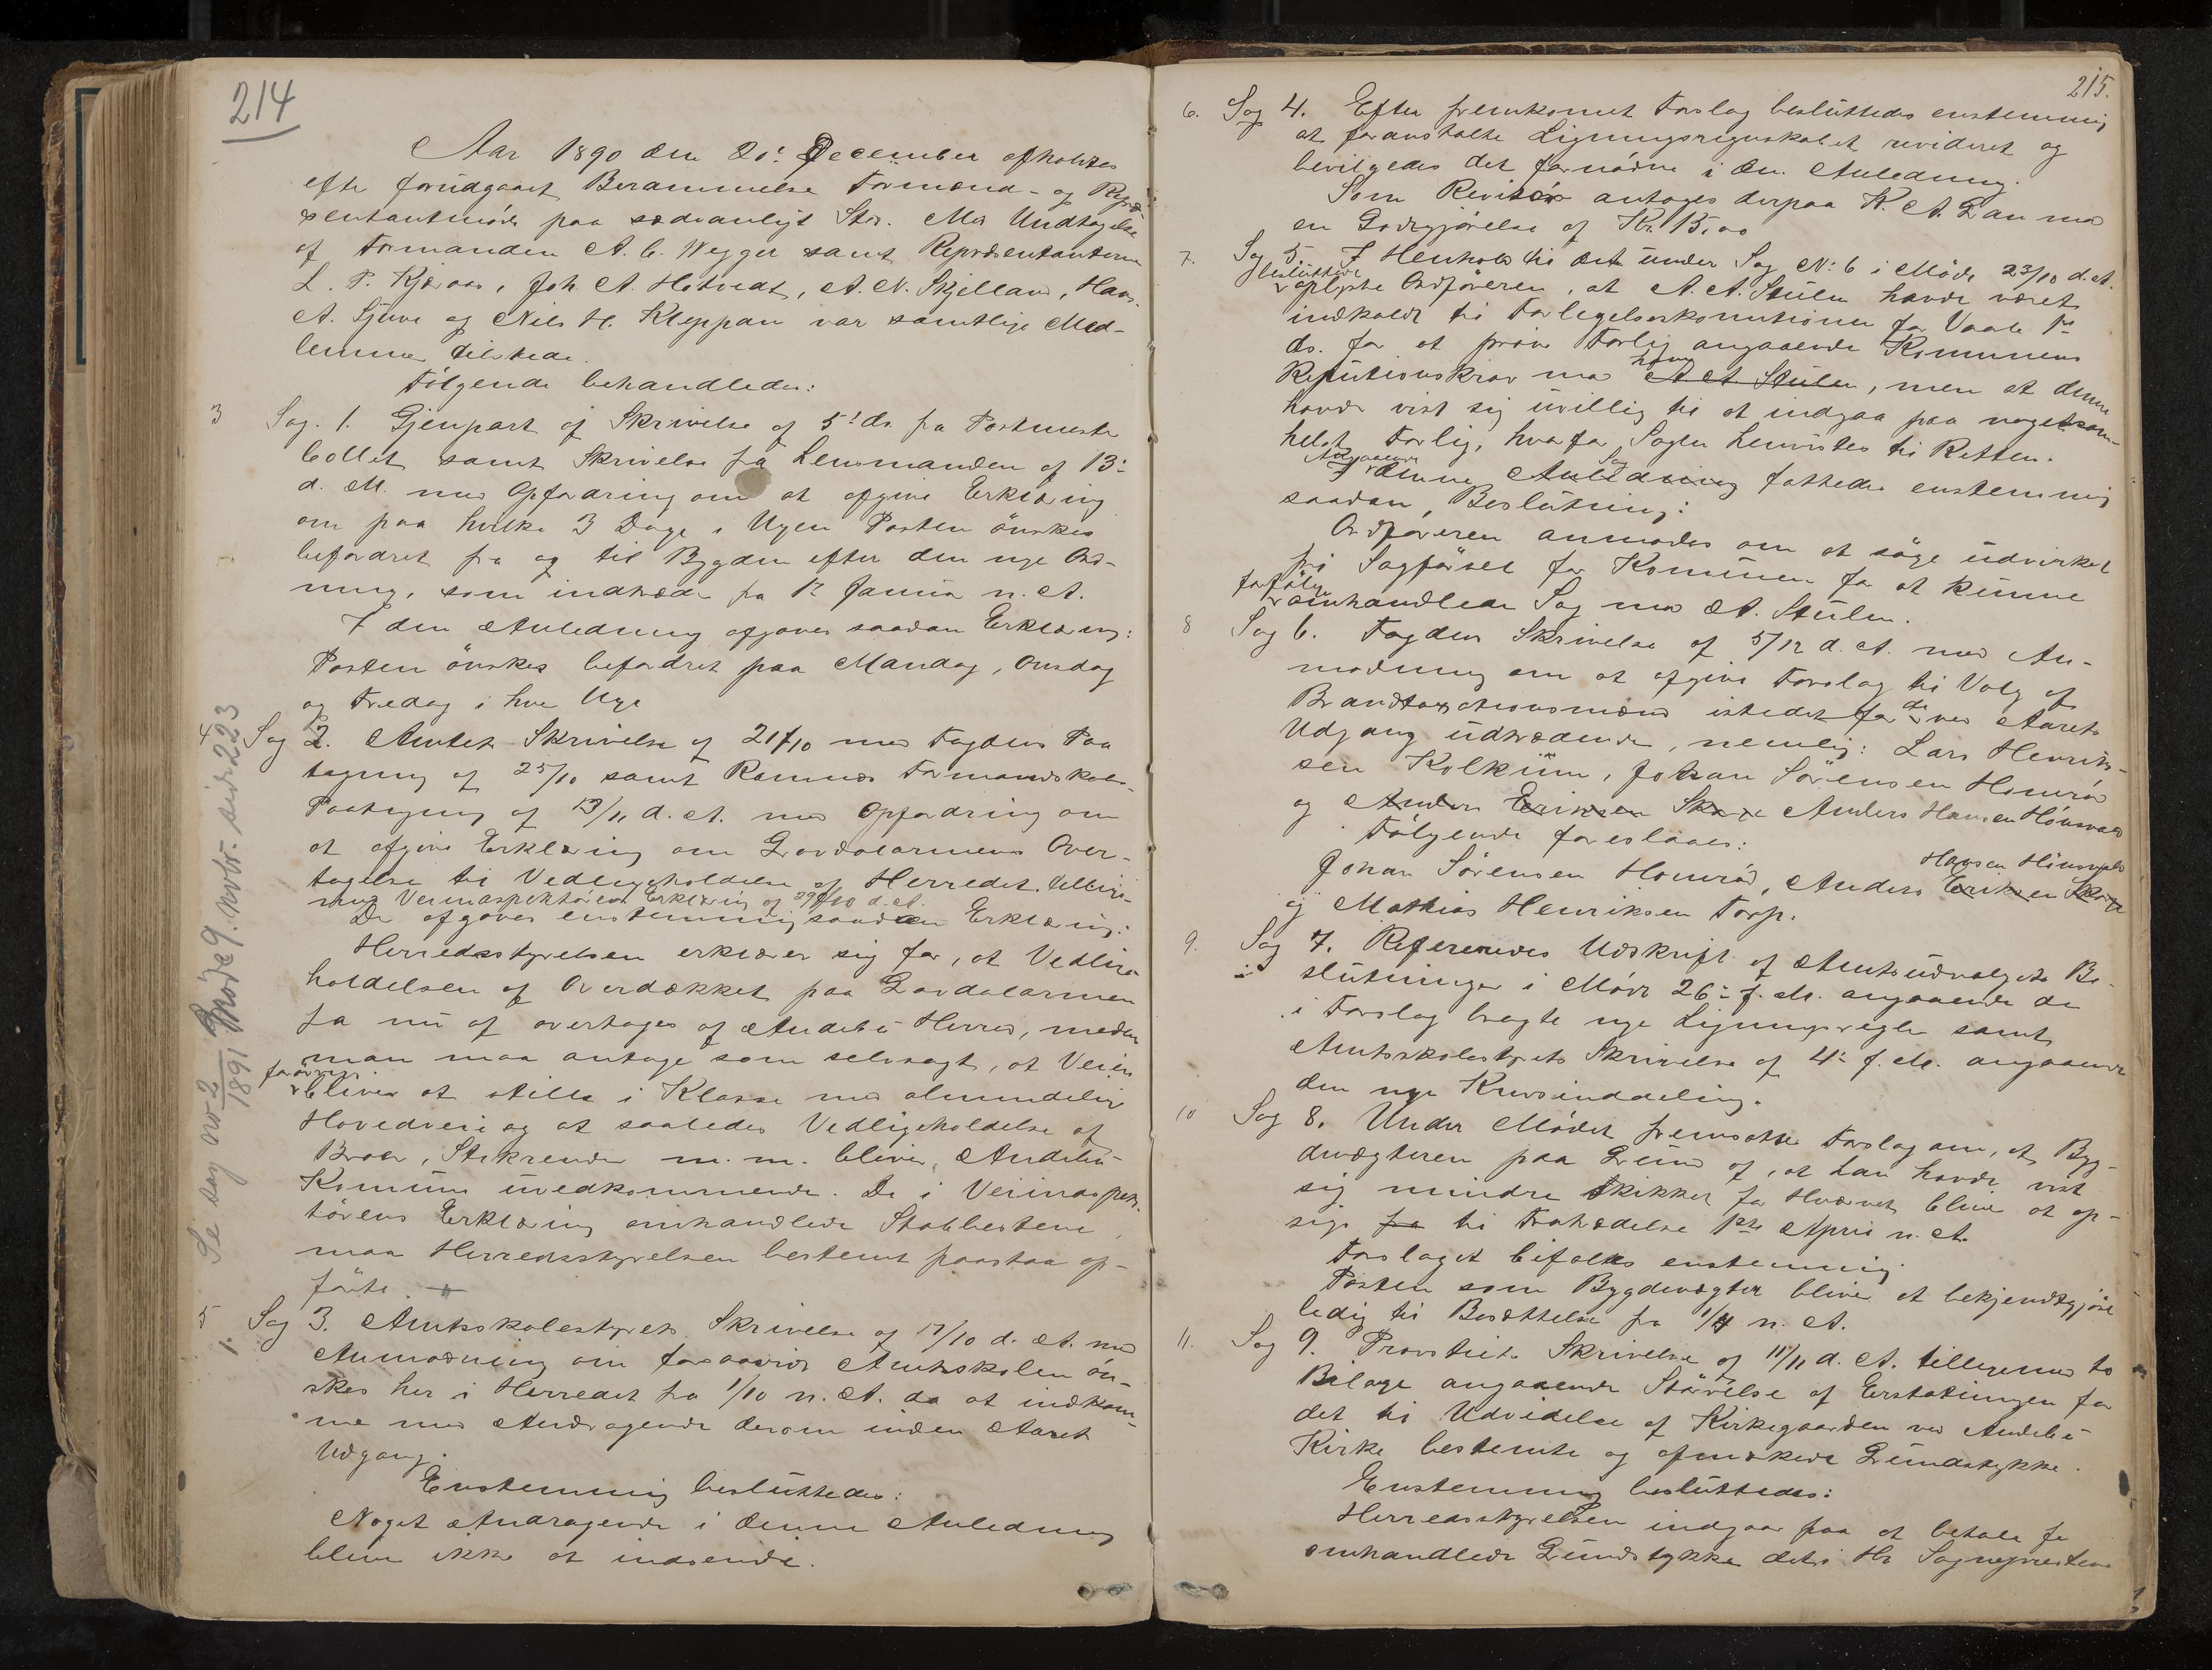 214
Aar 1890 den 20de December afholdtes
efter forudgaaet Berammelse Formænd- og Repræ-
sentantmøde paa sædvanligt Sted. Med Undtagelse
af Formanden A. C. Wegger samt Repræsentanterne
L. P. Kjæraas, Joh. A. Hotvedt, A. N. Skjelland, Hans
A. Sjuve og Nils H. Kleppan var samtlige Med-
lemmer tilstede.
Følgende behandledes:
3 Sag. 1. Gjenpart af Skrivelse af 5te ds. fra Postmester
Collet samt Skrivelse fra Lensmanden af 13de
d. M. med Opfordring om at afgive Erklæring
om paa hvilke 3 Dage i Ugen Posten ønskes
befordret fra og til Bygden efter den nye Ord-
ning, som indtræder fra 1ste Januar n. A.
I den Anledning afgaves saadan Erklæring:
Posten ønskes befordret paa Mandag, Onsdag
og Fredag i hver Uge
4 Sag 2. Amtets Skrivelse af 21/10 med Fogdens Paa
tegning af 25/10 samt Ramnæs Formandskabs
Paategning af 13/11 d. A. med Opfordring om
at afgive Erklæring om Lavdalarmens Over-
tagelse til Vedligeholdelse af Herredet. Tillige-
med Veiinspektørens Erklæring af 29/10 d. A.
Der afgaves enstemmig saadan Erklæring:
Herredsstyrelsen erklærer sig for, at Vedlige-
holdelsen af Overdækket paa Lavdalarmen
fra nu af overtages af Andebu Herred, medens
man maa antage som selvsagt, at Veien
forøvrigt
bliver at stille i Klasse med almindelig
Hovedvei og at saaledes Vedligeholdelse af
Broer, Stikrender m. m. bliver Andebu
Kommune uvedkommende. De i Veiinspek-
tørens Erklæring omhandlede Stabbestene
maa Herredsstyrelsen bestemt paastaa op-
førte.
5 Sag 3. Amtsskolestyrets Skrivelse af 17/10 d. A. med
1. Anmodning om forsaavidt Amtsskolen øn-
skes her i Herredet fra 1/10 n. A. da at indkom-
me med Andragende derom inden Aarets
Udgang.
Enstemmig besluttedes:
Noget Andragende i denne Anledning
bliver ikke at indsende.
Se sag no 2/1891 Møde 9. novbr. side 223
215.
6. Sag 4. Efter fremkomet Forslag besluttedes enstemmig
at foranstalte Ligningsregnskabet revideret og
bevilgedes det fornødne i den Anledning.
Som Revisor antoges derpaa K. A. Gran med
en Godtgjørelse af Kr. 15,00
7. Sag 5. I Henhold til det under Sag No 6 i Møde 23/10 d. A.
besluttede
oplyste Ordføreren, at A. A. Stulen havde været
indkaldt til Forlegelseskommissionen for Vaale 1ste
ds. for at prøve Forlig angaaende Kommunens
ham
Refusionskrav mod A. A. Stulen, men at denne
havde vist sig uvillig til at indgaa paa nogetsom-
helst Forlig, hvorfor Sagen henvistes til Retten.
Angaaende Sag
I denne Anledning fattedes enstemmig
saadan Beslutning:
Ordføreren anmodes om at søge udvirket
fri Sagførsel for Kommunen for at kunne
forfølge
omhandlede Sag mod A. Stulen.
8 Sag 6. Fogdens Skrivelse af 5/12 d. A. med An-
modning om at afgive Forslag til Valg af
Brandtaxationsmænd istedetfor de ved Aarets
Udgang udtrædende, nemlig: Lars Henrik-
sen Kolkinn, Johan Sørensen Honerød
og Anders Eriksen Skorge Anders Hansen Hønsvald
Følgende foreslaaes:
Hansen Hønsvald
Johan Sørensen Honerød, Anders Eriksen Skorge
og Mathias Henriksen Torp.
9. Sag 7. Refereredes Udskrift af Amtsudvalgets Be-
slutninger i Møde 26de f. M. angaaende de
i Forslag bragte nye Ligningsregler samt
Amtsskolestyrets Skrivelse af 4de f. M. angaaende
den nye Kursinddeling.
10 Sag 8. Under Mødet fremsattes Forslag om, at Byg-
devægteren paa Grund af, at han havde vist
sig mindre skikket for Hvervet, bliver at op-
sige fra til Fratrædelse 1ste April n. A.
Forslaget bifaldtes enstemmig
Posten som Bygdevægter bliver at bekjendtgjøre
ledig til Besættelse fra 1/4 n. A.
11. Sag 9. Provstiets Skrivelse af 11/11 d. A. tilligemed to
Bilage angaaende Størrelse af Erstatningen for
det til Udvidelse af Kirkegaarden ved Andebu
Kirke bestemte og afmerkede Grundstykke.
Enstemmig besluttedes:
Herredsstyrelsen indgaar paa at betale for
omhandlede Grundstykke det i Hr Sognepresten